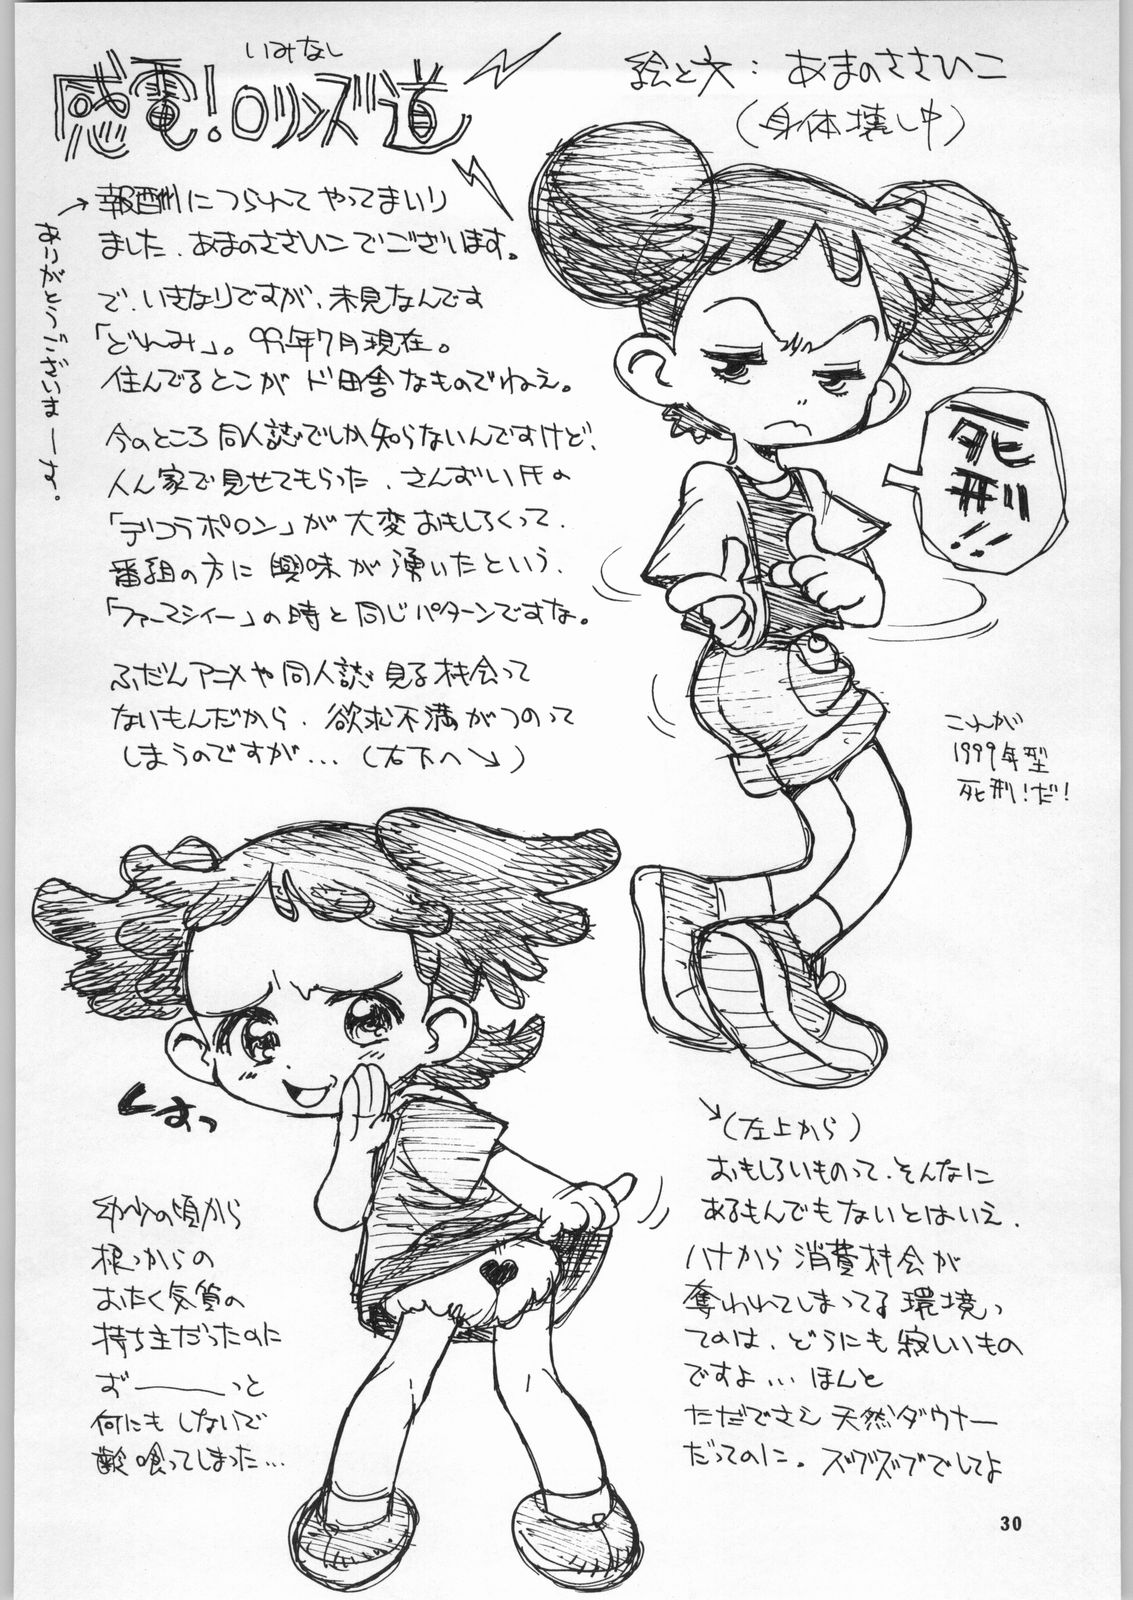 いみなし
感電!ロリンズ道
絵と文:あまのささひこ
(身体壊し中)
→報酬につられてやってまいり
ました、あまのささひこでございます。
ありがとうございまーす。
で、いきなりですが、未見なんです
「どれみ」。99年7月現在。
住んでるとこがド田舎なものでねえ。
今のところ同人誌でしか知らないんですけど、
人ん家で見せてもらった、さんずい氏の
「デリコラポロン」が大変おもしろくって、
番組の方に興味が湧いたという、
「ファーマシィー」の時と同じパターンですな。
ふだんアニメや同人誌見る機会って
ないもんだから、欲求不満がつのって
しまうのですが…(右下へ↘)
死
刑
!!
これが
1999年型
死刑!だ!
くすっ
幼少の頃から
根っからの
おたく気質の
持ち主だったのに
ずーーーっと
何にもしないで
齢喰ってしまった…
↘(左上から)
おもしろいものって、そんなに
あるもんでもないとはいえ、
ハナから消費機会が
奪われてしまってる環境っ
てのは、どうにも寂しいもの
ですよ…ほんと
ただでさえ天然ダウナー
だってのに。ズブズブでしてよ
30